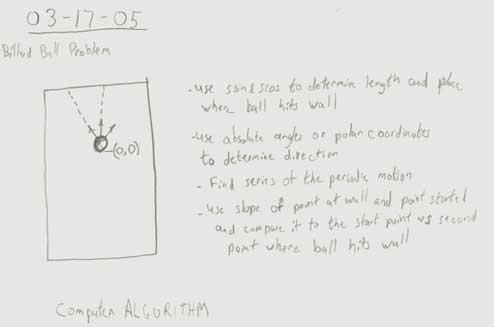 03-17-05
Billard Ball Problem
(0,0)
- use ssin & scos to determine length and place
where ball hits wall
- use absolute angles or polar coordinates
to determine direction
- Find series of the periodic motion
- use slope of point at wall and point started
and compare it to the start point vs second
point where ball hits wall
Computer ALGORITHM